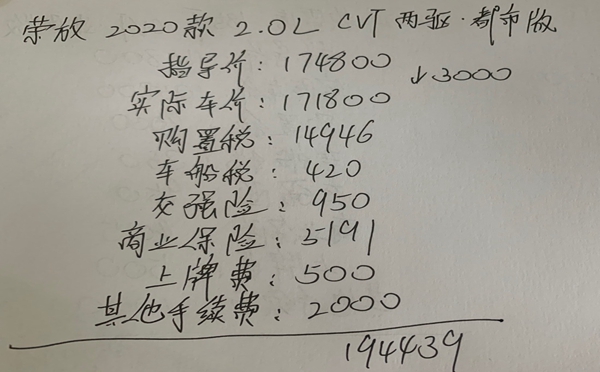 荣放 2020款 2.0L CVT 两驱·都市版
指导价：174800 ↓3000
实际车价：171800
购置税：14946
车船税：420
交强险：950
商业保险：5191
上牌费：500
其他手续费：2000
194439